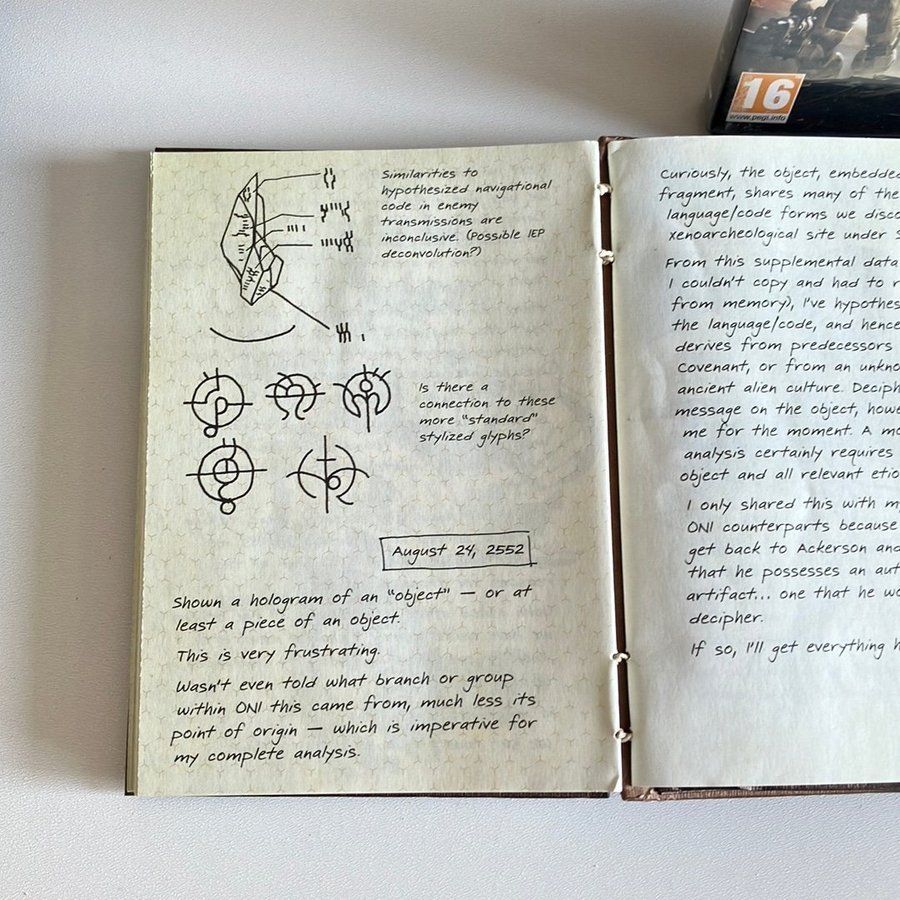 16
www.pegi.info
Similarities to
hypothesized navigational
code in enemy
transmissions are
inconclusive. (Possible IEP
deconvolution?)
Is there a
connection to these
more "standard"
stylized glyphs?
August 24, 2552
Shown a hologram of an "object" — or at
least a piece of an object.
This is very frustrating.
Wasn't even told what branch or group
within ONI this came from, much less its
point of origin — which is imperative for
my complete analysis.
Curiously, the object, embedded
fragment, shares many of the
language/code forms we disco
xenoarcheological site under S
From this supplemental data
I couldn't copy and had to r
from memory), I've hypothes
the language/code, and hence
derives from predecessors
Covenant, or from an unkno
ancient alien culture. Deciph
message on the object, howe
me for the moment. A mo
analysis certainly requires
object and all relevant etio
I only shared this with m
ONI counterparts because
get back to Ackerson and
that he possesses an aut
artifact... one that he wo
decipher.
If so, I'll get everything h